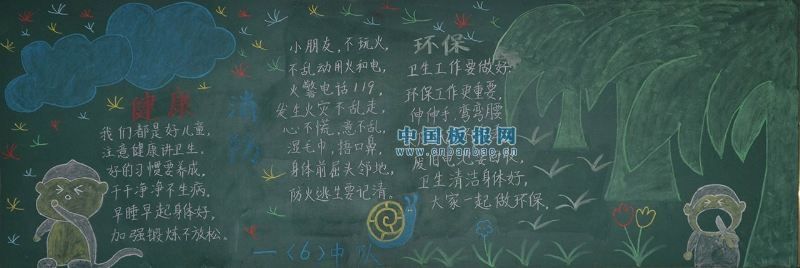 健康
我们都是好儿童,
注意健康讲卫生。
好的习惯要养成,
干干净净不生病,
早睡早起身体好,
加强锻炼不放松。
消防
小朋友,不玩火,
不乱动用火和电,
火警电话119,
发生火灾不乱走,
心不慌,意不乱,
湿毛巾,捂口鼻,
身体前屈夫邻地,
防火逃生要记清。
环保
卫生工作要做好,
环保工作更重要,
伸伸手,弯弯腰
废旧电池要回收,
卫生清洁身体好,
大家一起做环保。
一〈6〉中队
中国板报网
www.cnbanbao.cn